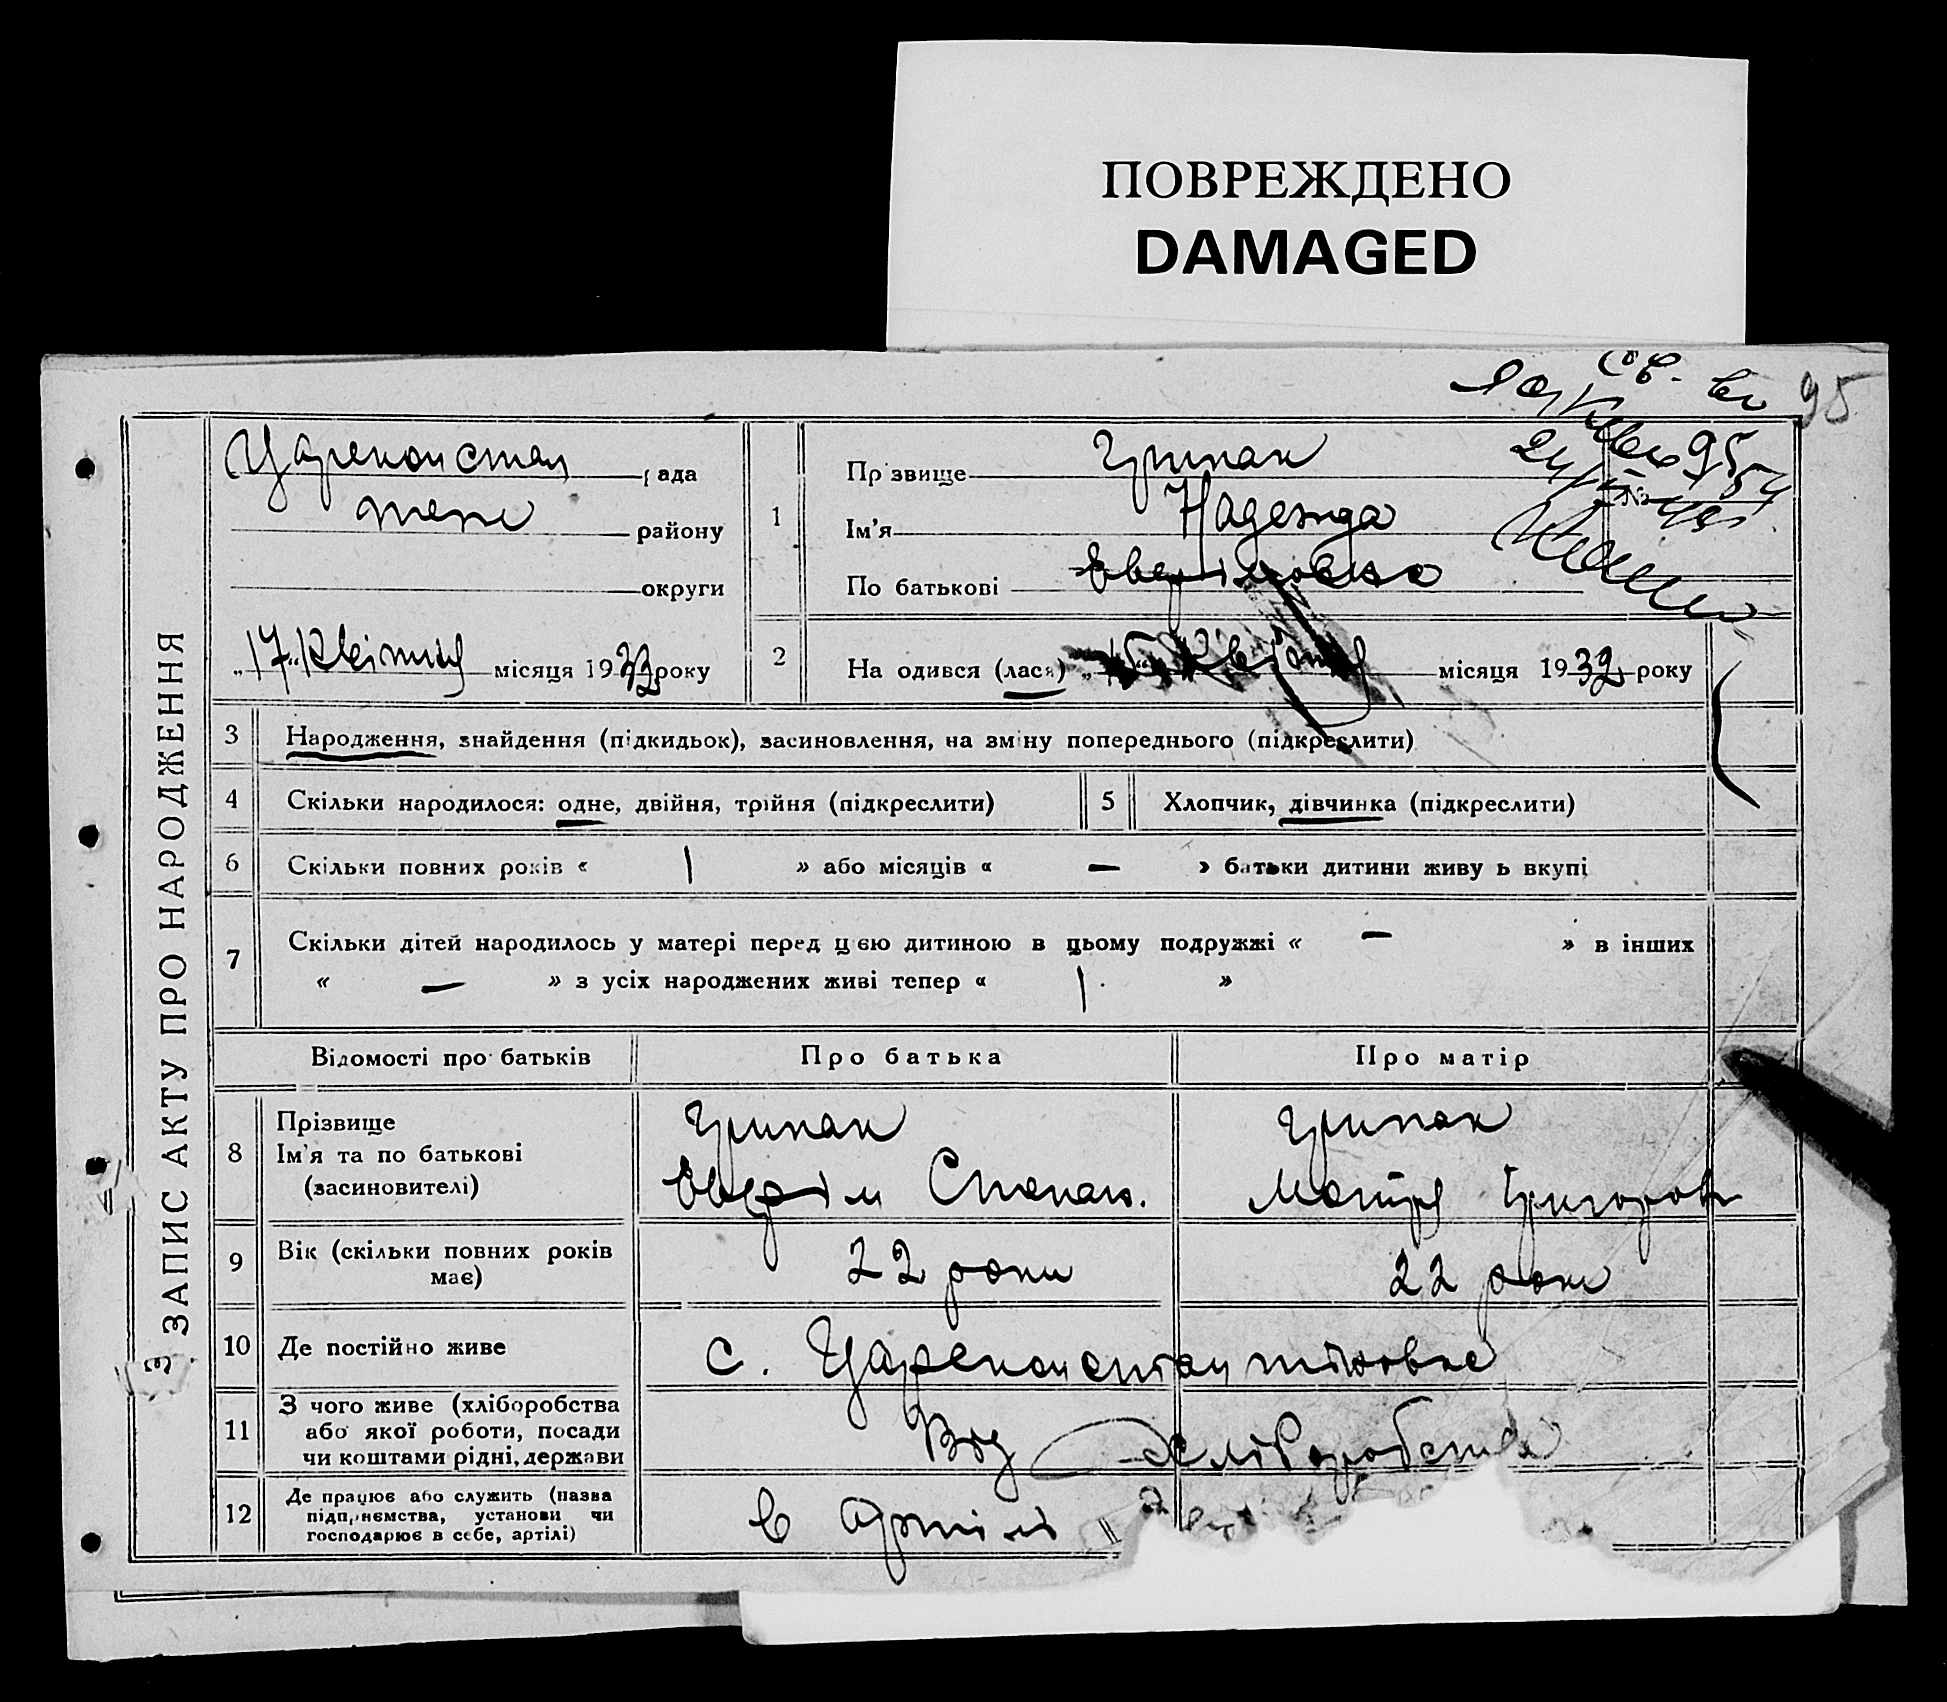 ПОВРЕЖДЕНО
DAMAGED
95
св-во
Царекон стан рада
района
району
округи
Прізвище Грипак
Ім'я Надежда
По батькові
№ 95
1
"17" Квітня місяця 1932 року
2 На одився (лася) "15" Квітня місяця 1932 року
ЗАПИС АКТУ ПРО НАРОДЖЕННЯ
3 Народження, знайдення (підкидьок), засиновлення, на зміну попереднього (підкреслити)
4 Скільки народилося: одне, двійня, трійня (підкреслити) 5 Хлопчик, дівчинка (підкреслити)
6 Скільки повних років « 1 » або місяців « — » батьки дитини живу ь вкупі
7 Скільки дітей народилось у матері перед цією дитиною в цьому подружжі « — » в інших
« — » з усіх народжених живі тепер « 1 »
Відомості про батьків Про батька Про матір
8 Прізвище Грипак Грипак
Ім'я та по батькові
(засиновителі) Степан. Григоров
9 Вік (скільки повних років має) 22 роки 22 роки
10 Де постійно живе с. Цареконстантиновке
11 З чого живе (хліборобства
або якої роботи, посади
чи коштами рідні, держави Від хліборобства
12 Де працює або служить (назва
підприємства, установи чи
господарює в себе, артілі) в артілі